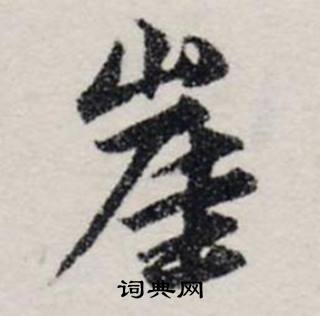 崖
词典网